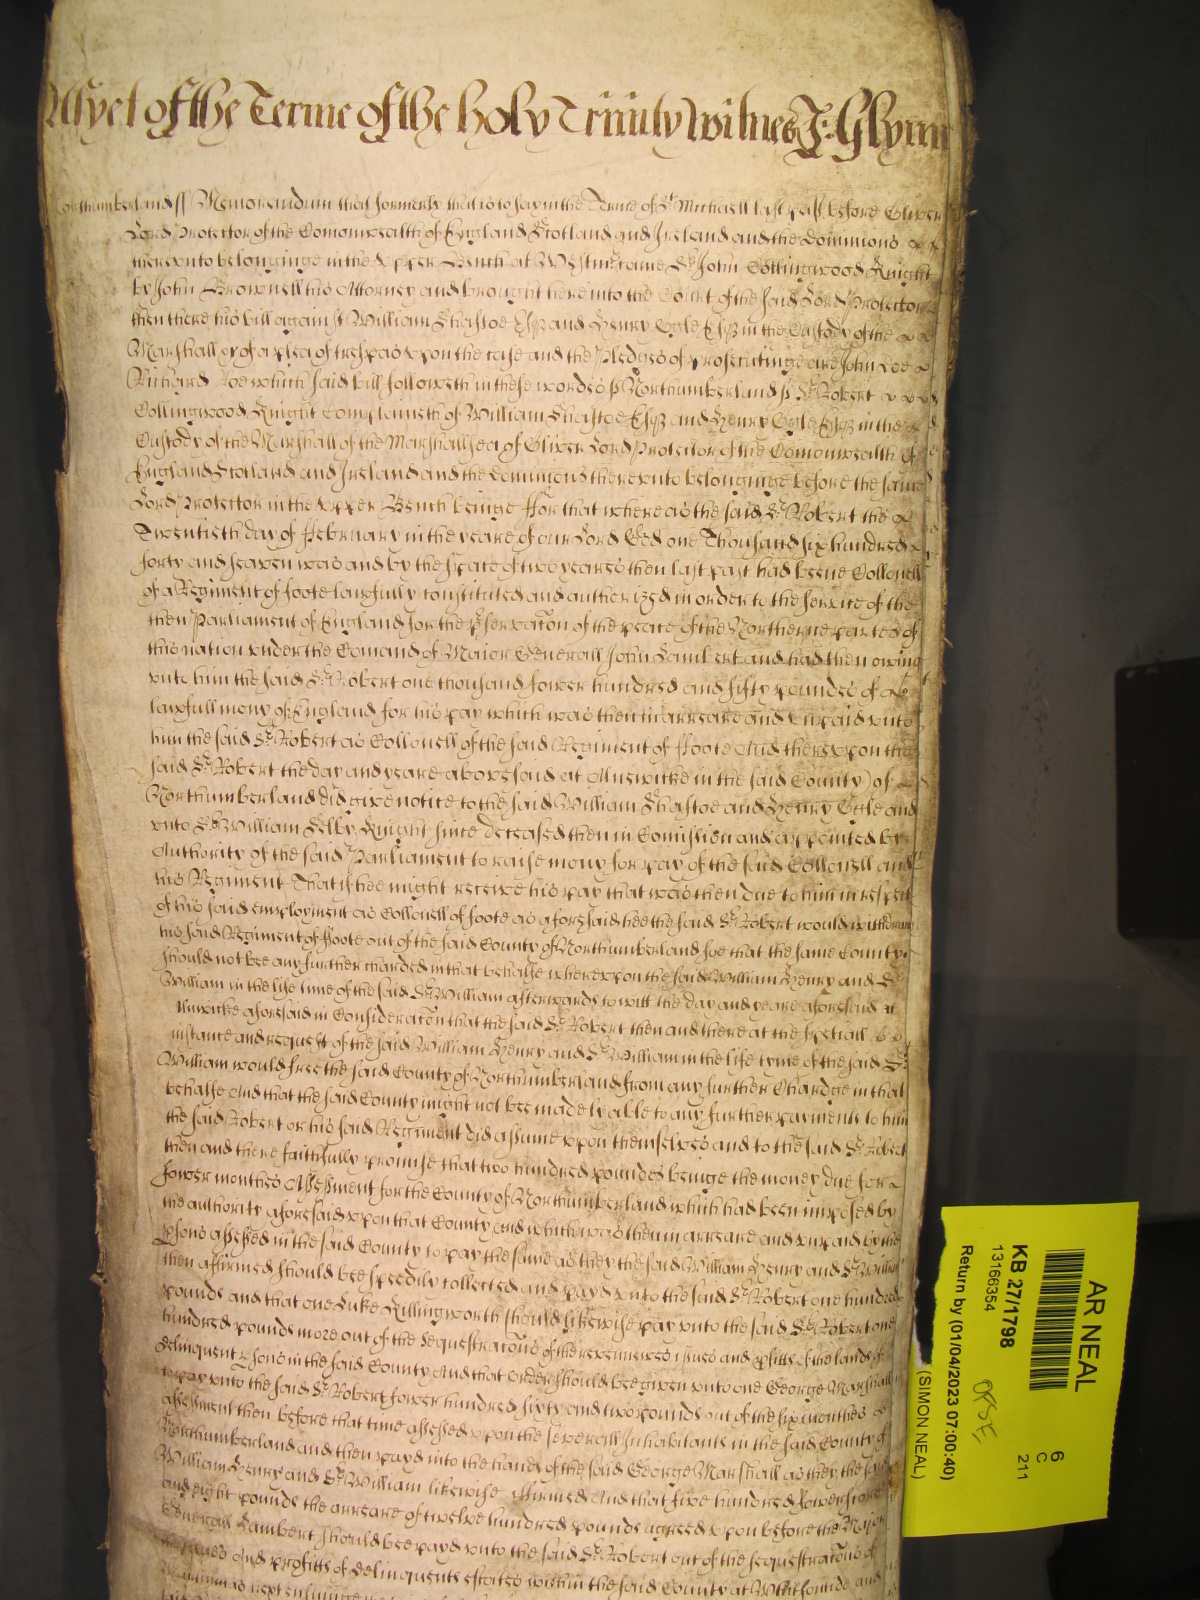 Asyet of the Terme of the holy Trinity Witnes J: Glynn
Northumberland ss Memorandum that formerly that is to say in the Terme of St Michaell last past before Oliver
Lord Protector of the Comonwealth of England Scotland and Ireland and the Dominions
therevnto belonginge in the vpper Bench at Westmr came Sr John Collingwood Knight
by John Brownell his Attorney and brought here into the Court of the said Lord Protector
then there his bill against William Shaftoe Esqr and Henry Ogle Esqr in the Custody of the
Marshall &c of a plea of trespas vpon the case and the Pledges of prosecutinge are John Doe
Richard Roe which said bill followeth in these wordes ss Northumberland ss Sr Robert
Collingwood Knight Complaineth of William Shaftoe Esqr and Henry Ogle Esqr in the
Custody of the Marshall of the Marshallsea of Oliver Lord Protector of the Comonwealth of
England Scotland and Ireland and the dominions therevnto belonginge before the same
Lord Protector in the vpper Bench beinge ffor that whereas the said Sr Robert the
Twentieth day of ffebruary in the yeare of our Lord God one Thousand six hundred
forty and seaven was and by the space of two yeares then last past had beene Collonell
of a Regiment of foote lawfully constituted and autherized in order to the service of the
then Parliament of England for the pservacon of the peace of the Northerne partes of
this nation vnder the Comand of Major Generall John Lambert and had then owing
vnto him the said Sr Robert one thousand fower hundred and fifty poundes of
lawfull mony of England for his pay which was then in arreare and vnpaid vnto
him the said Sr Robert as Collonell of the said Regiment of ffoote And therevpon the
said Sr Robert the day and yeare abovesaid at Anwicke in the said County of
Northumberland did give notice to the said William Shaftoe and Henry Ogle and
vnto Sr William Selby Knight since deceased then in Comission and appointed by
Authority of the said Parliament to raise mony for pay of the said Collonell and
his Regiment That if hee might receive his pay that was then due to him in respect
of his said employment as Collonell of foote as aforesaid hee the said Sr Robert would withdraw
his said Regiment of ffoote out of the said County of Northumberland soe that the same County
should not bee any further charded in that behalfe wherevpon the said William Henry and Sr
William in the life time of the said Sr William afterwards to witt the day and yeare aforesaid at
Anwicke aforesaid in Consideracon that the said Sr Robert then and there at the speciall
instance and request of the said William Henry and Sr William in the life tyme of the said Sr
William would free the said County of Northumberland from any further Chardge in that
behalfe And that the said County might not bee made lyable to any further payments to him
the said Robert or his said Regiment did assume vpon themselves and to the said Sr Robert
then and there faithfully promise that two hundred poundes beinge the money due for a
fower monthes Assessment for the County of Northumberland which had been imposed by
the authority aforesaid vpon that County and which was then in arreare and vnpaid by the
psons assessed in the said County to pay the same as they the said William Henry and Sr William
then affirmed should bee speedily collected and payd vnto the said Sr Robert one hundred
pounds and that one Luke Killingworth should likewise pay vnto the said Sr Robert one
hundred pounds more out of the sequestracons of the revennewes issues and pfitts of the lands of
delinquent psons in the said County And that order should bee given vnto one George Marshall
to pay vnto the said Sr Robert fower hundred sixty and two pounds out of the six monthes
assessment then before that time assessed vpon the severall Inhabitants in the said County of
Northumberland and then payd into the hands of the said George Marshall as they the said
William Henry and Sr William likewise affirmed And that five hundred fowerscore
and eight pounds the arreare of twelve hundred pounds agreed vpon before the Major
Generall Lambert should bee payd vnto the said Sr Robert out of the sequestracons of
the issues and profitts of delinquents estates within the said County at Whitsontide and
next ensuinge
AR NEAL
KB 27/1798
13166354
Return by (01/04/2023 07:00:40)
(SIMON NEAL)
6
C
211